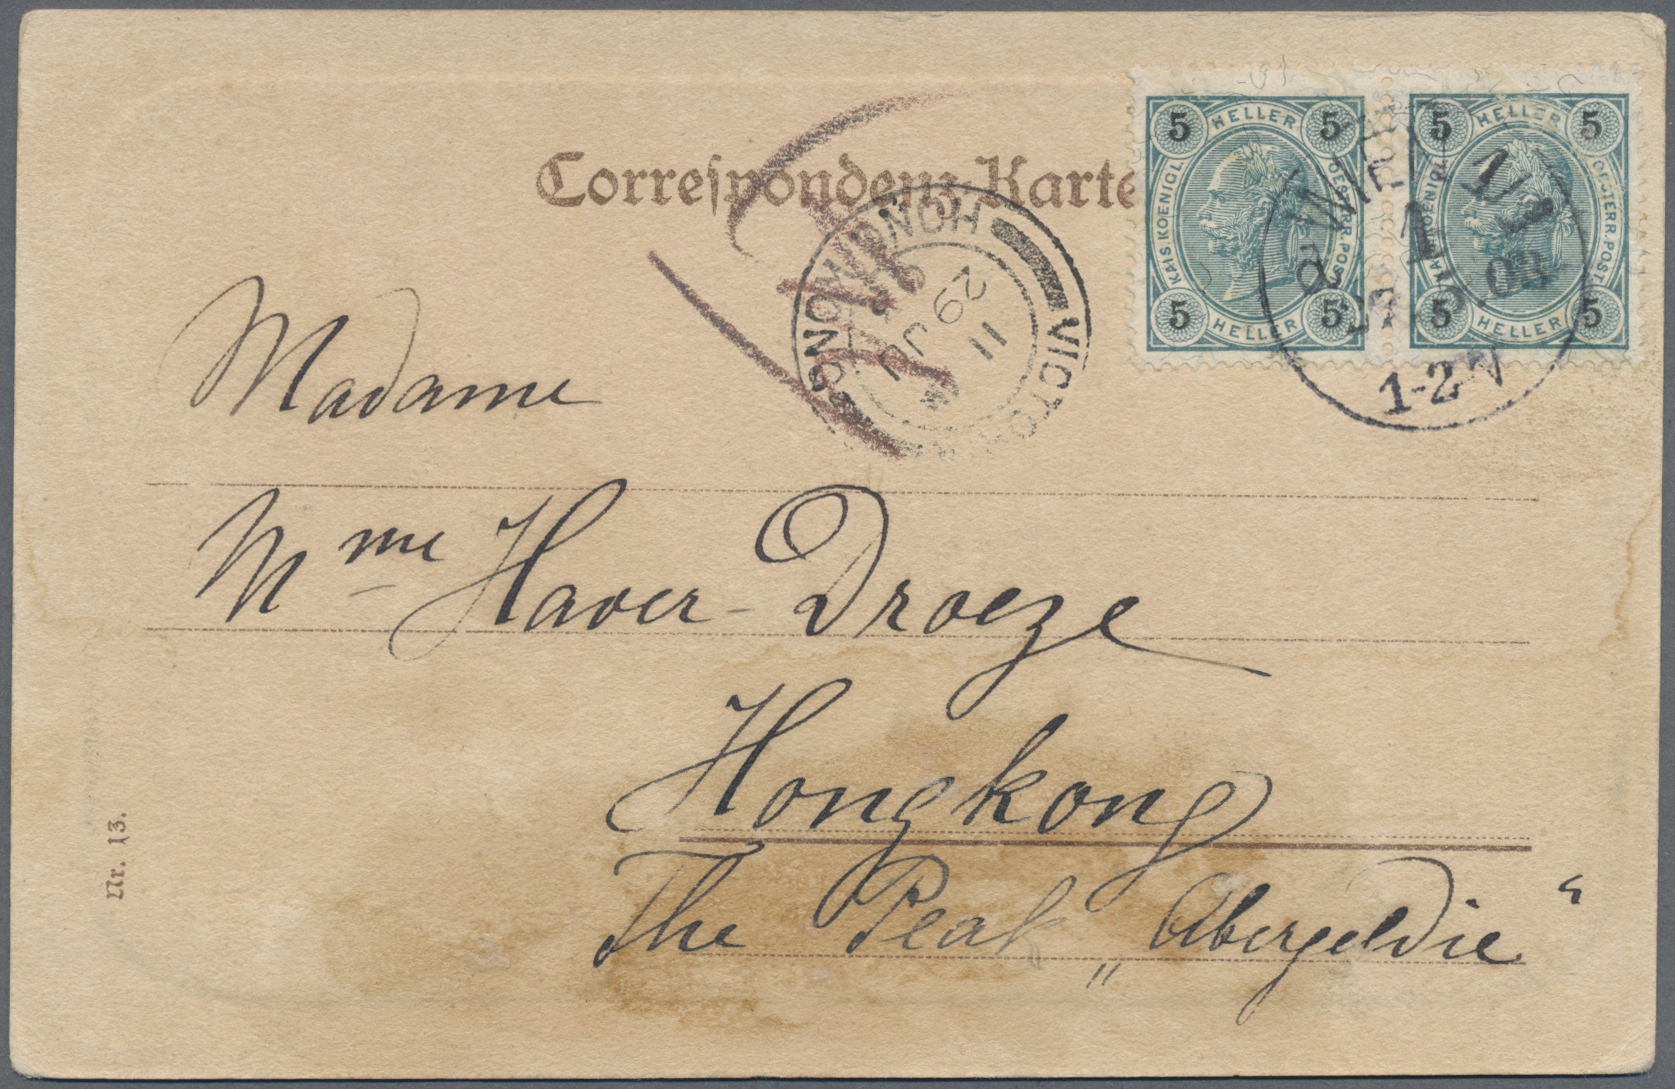 Correspondenz-Karte
5 HELLER 5
KAIS.KOENIGL. OESTERR.POST
5 HELLER 5
5 HELLER 5
KAIS.KOENIGL. OESTERR.POST
5 HELLER 5
WIEN 1/1
1
1-2N
VICTORIA HONGKONG
11
29 JU
Madame
Mme Haver-Droeze
Hongkong
The Peak „Abergeldie“
Nr. 13.